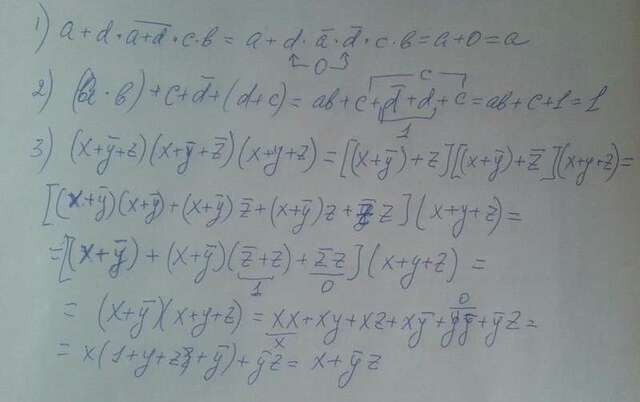 1) a + d · a̅+̅d̅ · c · b = a + d · a̅ · d̅ · c · b = a + 0 = a
0
c
2) (a · b) + c + d̅ + (d + c) = ab + c + d̅ + d + c = ab + c + 1 = 1
1
3) (x + y̅ + z)(x + y̅ + z̅)(x + y + z) = [(x + y̅) + z][(x + y̅) + z̅](x + y + z) =
[(x + y̅)(x + y̅) + (x + y̅) z̅ + (x + y̅) z + z̅ z](x + y + z) =
= [(x + y̅) + (x + y̅)(z̅ + z) + z̅ z](x + y + z) =
1 0
0
= (x + y̅)(x + y + z) = xx + xy + xz + xy̅ + yy̅ + y̅z =
x
= x(1 + y + z + y̅) + y̅z = x + y̅z